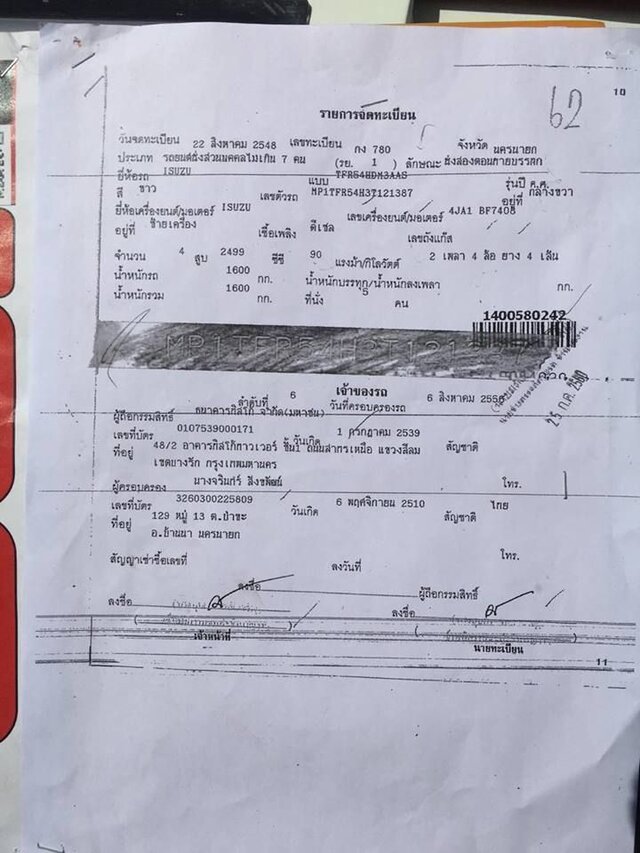 10
62
รายการจดทะเบียน
วันจดทะเบียน 22 สิงหาคม 2548 เลขทะเบียน กง 780 จังหวัด นครนายก
ประเภท รถยนต์นั่งส่วนบุคคลไม่เกิน 7 คน (รย. 1 ) ลักษณะ นั่งสองตอนท้ายบรรทุก
ยี่ห้อรถ ISUZU แบบ TFR54HDM3AAS รุ่นปี ค.ศ.
สี ขาว เลขตัวรถ MP1TFR54H3T121387 อยู่ที่ กลางขวา
ยี่ห้อเครื่องยนต์/มอเตอร์ ISUZU เลขเครื่องยนต์/มอเตอร์ 4JA1 BF7408
อยู่ที่ ซ้ายเครื่อง เชื้อเพลิง ดีเซล เลขถังแก๊ส
จำนวน 4 สูบ 2499 ซีซี 90 แรงม้า/กิโลวัตต์ 2 เพลา 4 ล้อ ยาง 4 เส้น
น้ำหนักรถ 1600 กก. น้ำหนักบรรทุก/น้ำหนักลงเพลา กก.
น้ำหนักรวม 1600 กก. ที่นั่ง 5 คน
1400580242
เจ้าของรถ
ลำดับที่ 6 วันที่ครอบครองรถ 6 สิงหาคม
ผู้ถือกรรมสิทธิ์ ธนาคารทิสโก้ จำกัด(มหาชน)
เลขที่บัตร 0107539000171 วันเกิด 1 กรกฎาคม 2539 สัญชาติ
ที่อยู่ 48/2 อาคารทิสโก้ทาวเวอร์ ชั้น1 ถนนสาทรเหนือ แขวงสีลม
เขตบางรัก กรุงเทพมหานคร โทร.
ผู้ครอบครอง
เลขที่บัตร 3260300225809 วันเกิด 6 พฤศจิกายน 2510 สัญชาติ ไทย
ที่อยู่ 129 หมู่ 13 ต.ป่าขะ
อ.บ้านนา นครนายก
สัญญาเช่าซื้อเลขที่ ลงวันที่ โทร.
ลงชื่อ ผู้ถือกรรมสิทธิ์
ลงชื่อ ลงชื่อ
เจ้าหน้าที่ นายทะเบียน
11